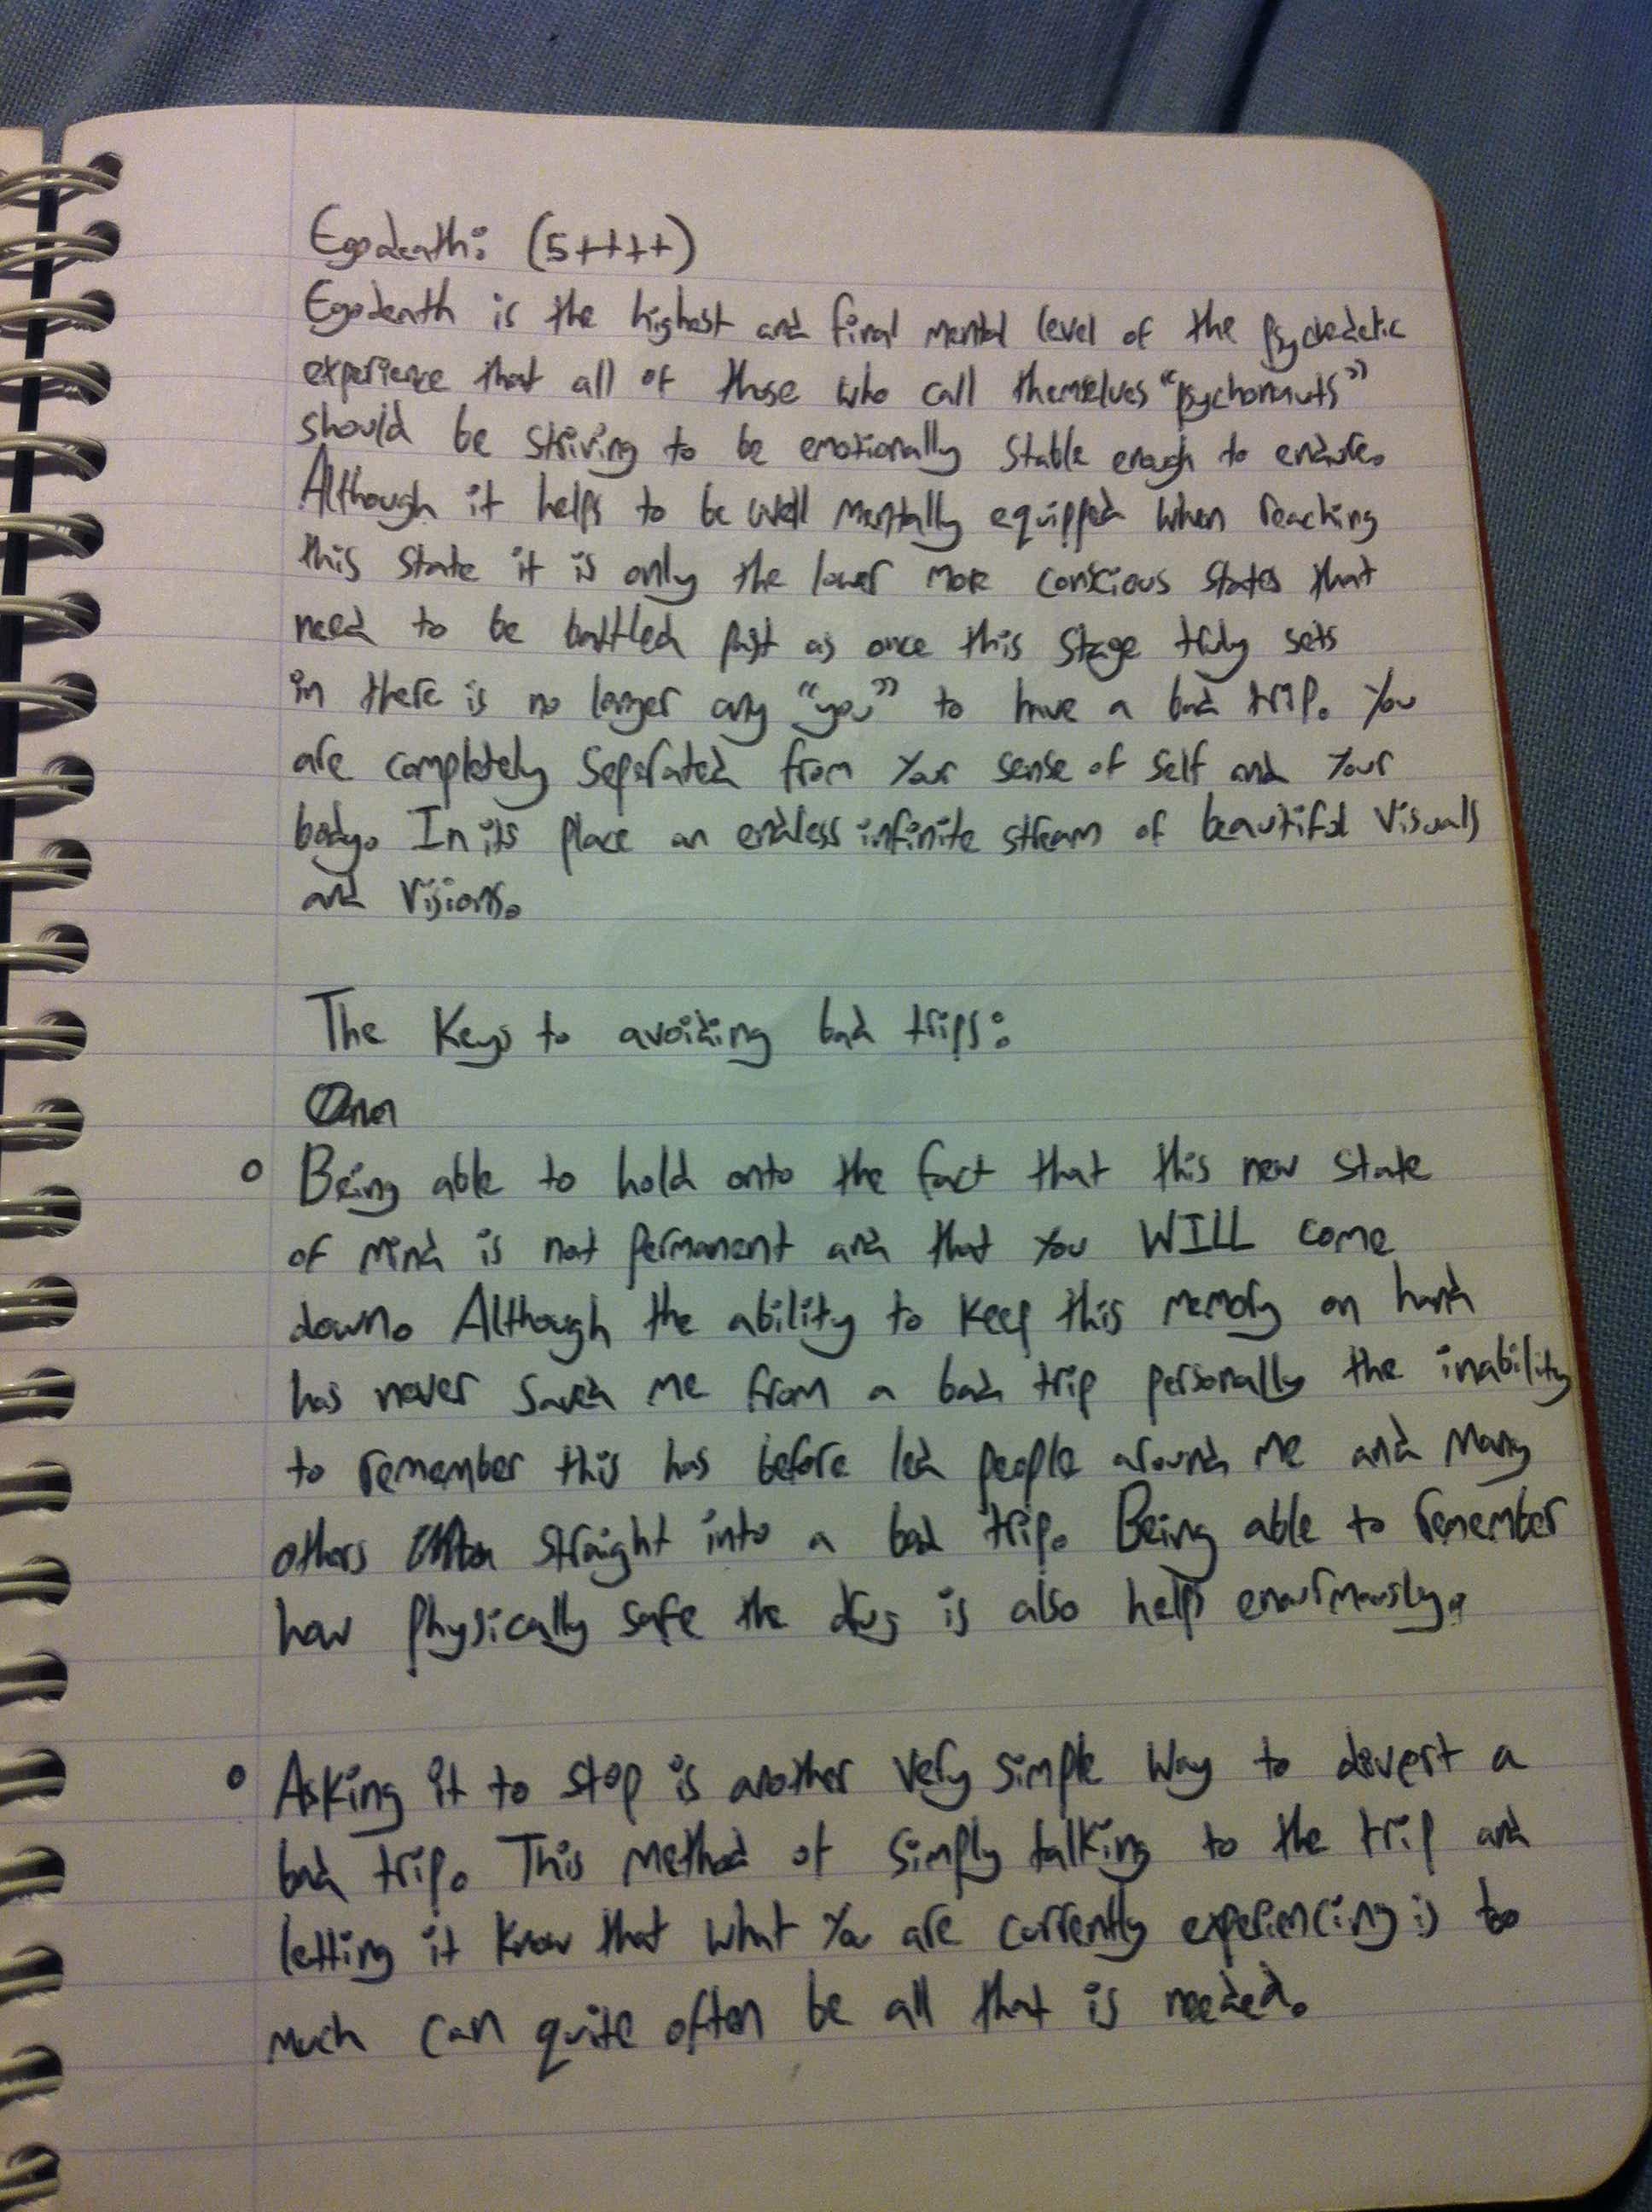 Egodeath: (5++++)
Egodeath is the highest and final mental level of the psychedelic
experience that all of those who call themselves "psychonauts"
should be striving to be emotionally stable enough to endure.
Although it helps to be well mentally equipped when reaching
this state it is only the lower more conscious states that
need to be battled past as once this stage truly sets
in there is no longer any "you" to have a bad trip. You
are completely seperated from your sense of self and your
body. In its place an endless infinite stream of beautiful visuals
and visions.
The Keys to avoiding bad trips:
Being able to hold onto the fact that this new state
of mind is not permanent and that you WILL come
down. Although the ability to keep this memory on hand
has never saved me from a bad trip personally the inability
to remember this has before led people around me and many
others straight into a bad trip. Being able to remember
how physically safe the drug is also helps enourmously.
Asking it to stop is another very simple way to divert a
bad trip. This method of simply talking to the trip and
letting it know that what you are currently experiencing is too
much can quite often be all that is needed.